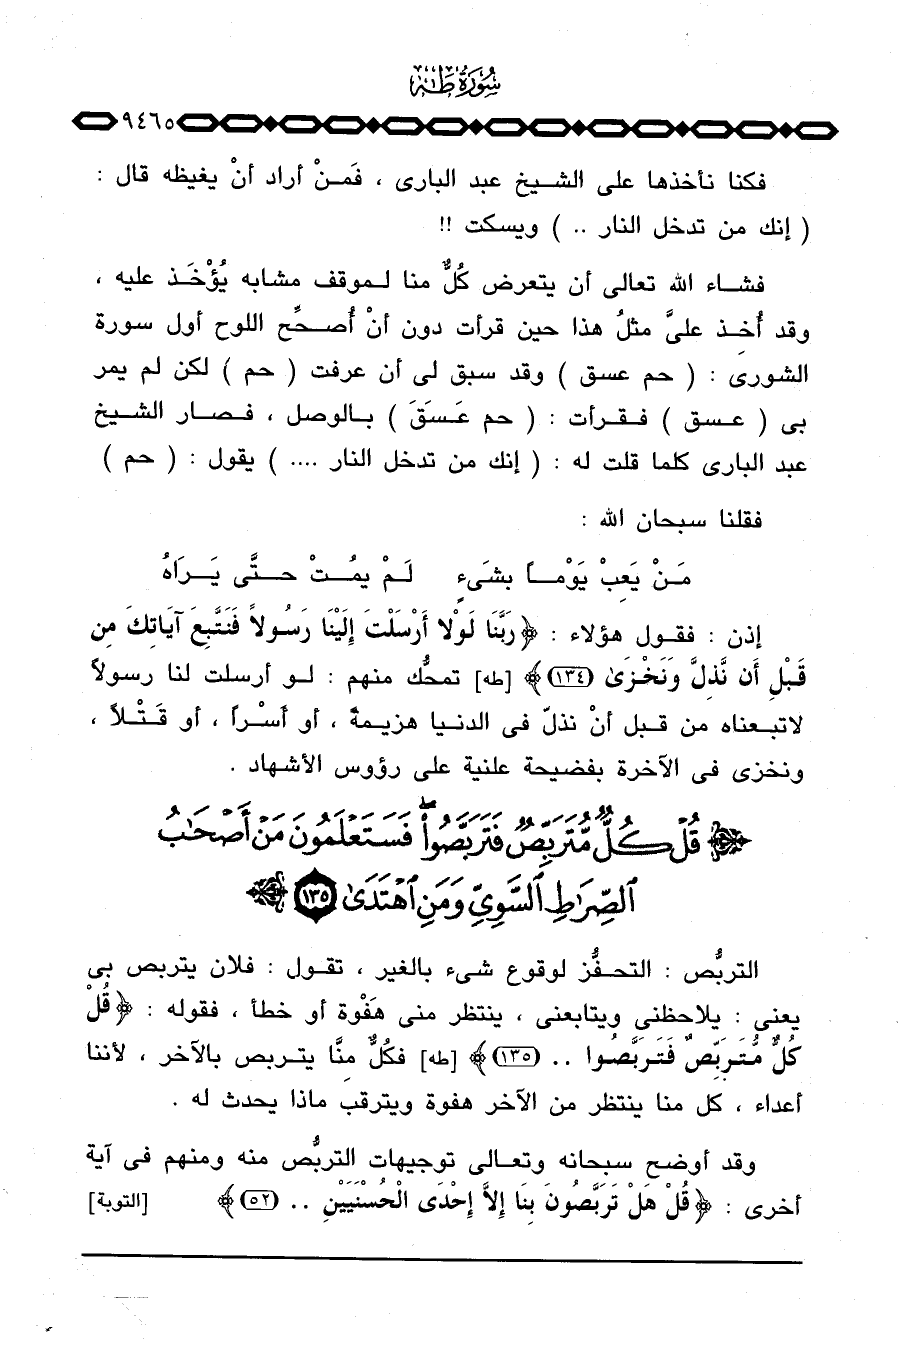 سُورَةُ طه
٩٤٦٥
فكنا نأخذها على الشيخ عبد البارى ، فَمنْ أراد أنْ يغيظه قال :
( إنك من تدخل النار .. ) ويسكت !!
فشاء الله تعالى أن يتعرض كُلٌّ منا لموقف مشابه يُؤْخَذ عليه ،
وقد أُخذ علىَّ مثلُ هذا حين قرأت دون أنْ أُصحِّح اللوح أول سورة
الشورى : ( حم عسق ) وقد سبق لى أن عرفت ( حم ) لكن لم يمر
بى ( عسق ) فقرأت : ( حم عَسَقَ ) بالوصل ، فصار الشيخ
عبد البارى كلما قلت له : ( إنك من تدخل النار .... ) يقول : ( حم )
فقلنا سبحان الله :
مَنْ يَعِبْ يَوْماً بشَىءٍ لَمْ يمُتْ حتَّى يَرَاهُ
إذن : فقول هؤلاء : ﴿رَبَّنَا لَوْلا أَرْسَلْتَ إِلَيْنَا رَسُولاً فَنَتَّبِعَ آيَاتِكَ مِن
قَبْلِ أَن نَّذِلَّ وَنَخْزَىٰ (١٣٤)﴾ [طه] تمحُّك منهم : لو أرسلت لنا رسولاً
لاتبعناه من قبل أنْ نذلّ فى الدنيا هزيمةً ، أو أَسْراً ، أو قَتْلاً ،
ونخزى فى الآخرة بفضيحة علنية على رؤوس الأشهاد .
﴿ قُلْ كُلٌّ مُّتَرَبِّصٌ فَتَرَبَّصُوا۟ۖ فَسَتَعْلَمُونَ مَنْ أَصْحَٰبُ
ٱلصِّرَٰطِ ٱلسَّوِيِّ وَمَنِ ٱهْتَدَىٰ ١٣٥ ﴾
التربُّص : التحفُّز لوقوع شىء بالغير ، تقول : فلان يتربص بى
يعنى : يلاحظنى ويتابعنى ، ينتظر منى هَفْوة أو خطأ ، فقوله : ﴿قُلْ
كُلٌّ مُّتَرَبِّصٌ فَتَرَبَّصُوا .. (١٣٥)﴾ [طه] فكُلٌّ منَّا يتربص بالآخر ، لأننا
أعداء ، كل منا ينتظر من الآخر هفوة ويترقب ماذا يحدث له .
وقد أوضح سبحانه وتعالى توجيهات التربُّص منه ومنهم فى آية
أخرى : ﴿قُلْ هَلْ تَرَبَّصُونَ بِنَا إِلاَّ إِحْدَى الْحُسْنَيَيْنِ .. (٥٢)﴾ [التوبة]